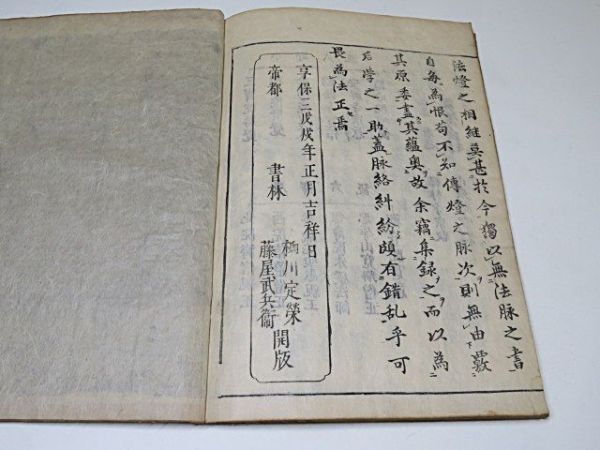 法燈之相継莫甚於今獨以無法脉之書
自毎為恨苟不知傳燈之脉次則無由覈
其原委盡其蘊奥故余竊集録之而以為
后学之一助蓋脉絡糾紛頗有錯乱乎可
畏為法正焉
享保三戊戌年正月吉祥日
帝都 書林 栖川定榮
藤屋武兵衛 開版